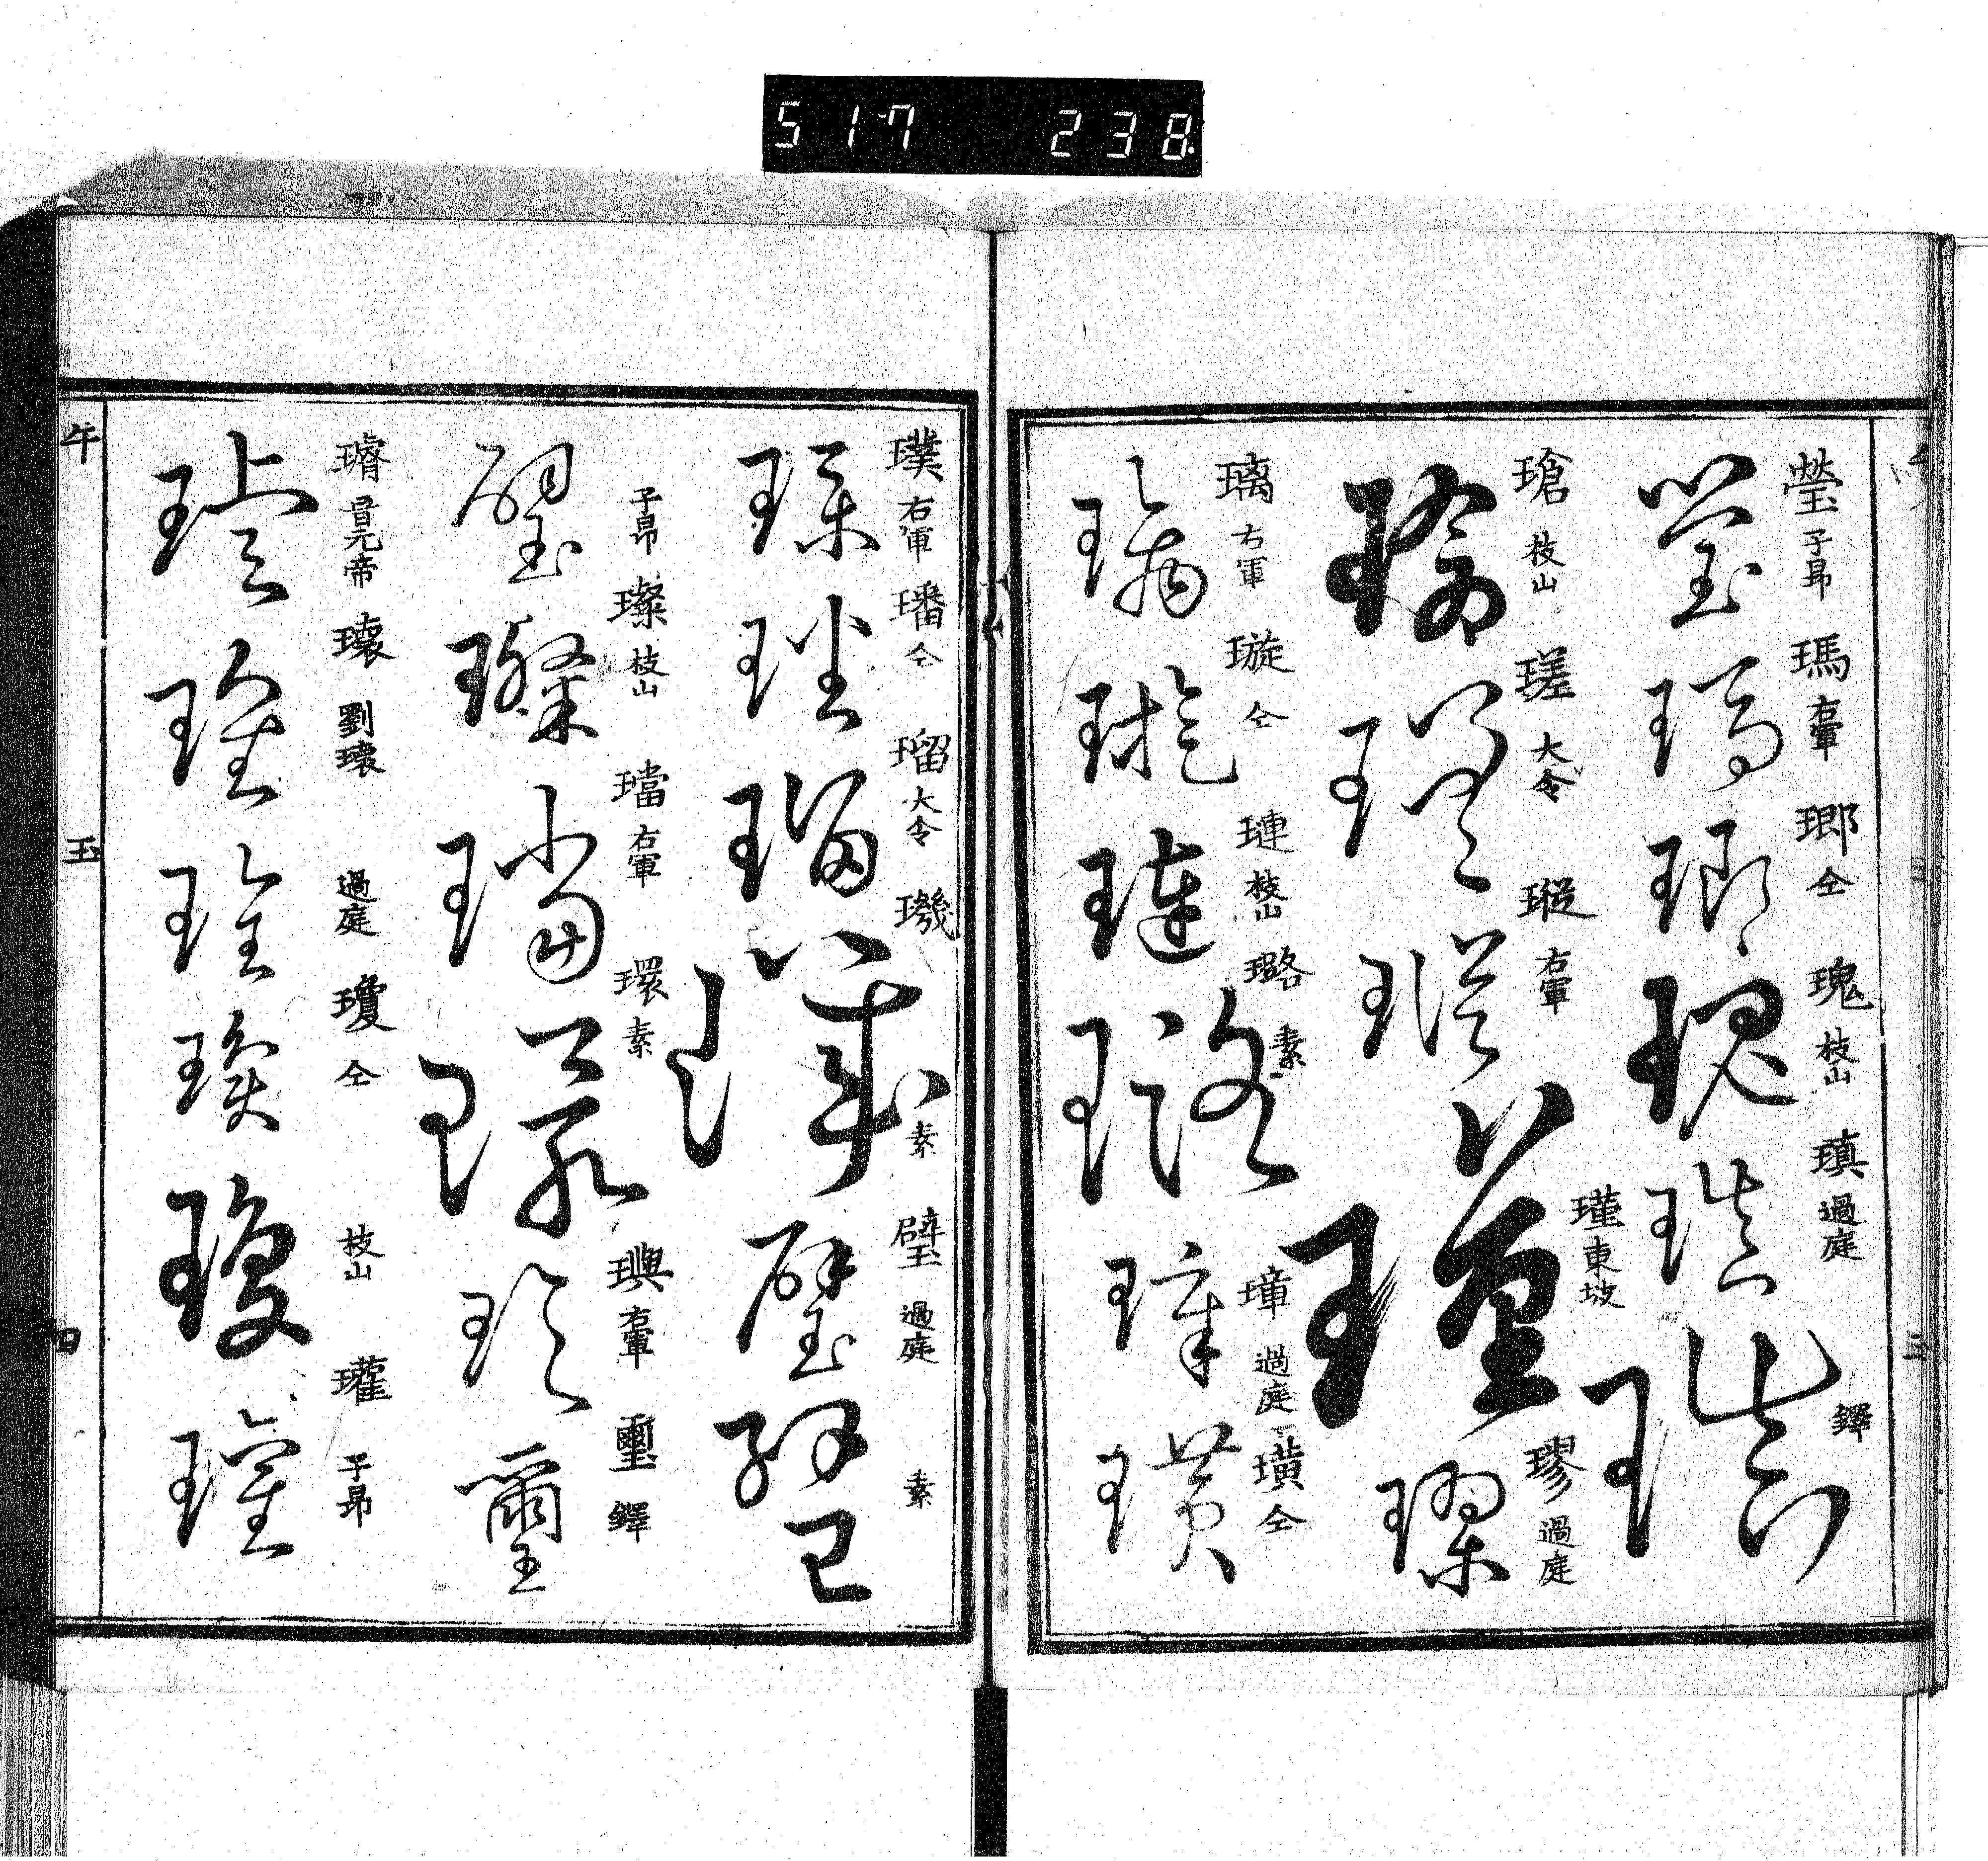 517 238
瑩 子昂 瑪 右軍 瑯 仝 瑰 枝山 瑱 過庭 鐸
瑲 枝山 瑳 大令 瑽 右軍 瑾 東坡 璆 過庭
璃 右軍 璇 仝 璉 枝山 璐 素 璋 過庭 璜 仝
璞 右軍 璠 仝 瑠 大令 璣 素 璧 過庭 素
子昂 璨 枝山 璫 右軍 環 素 璵 右軍 璽 鐸
璿 晉元帝 瓌 劉瓌 過庭 瓊 仝 枝山 瓘 子昂
午 玉 四